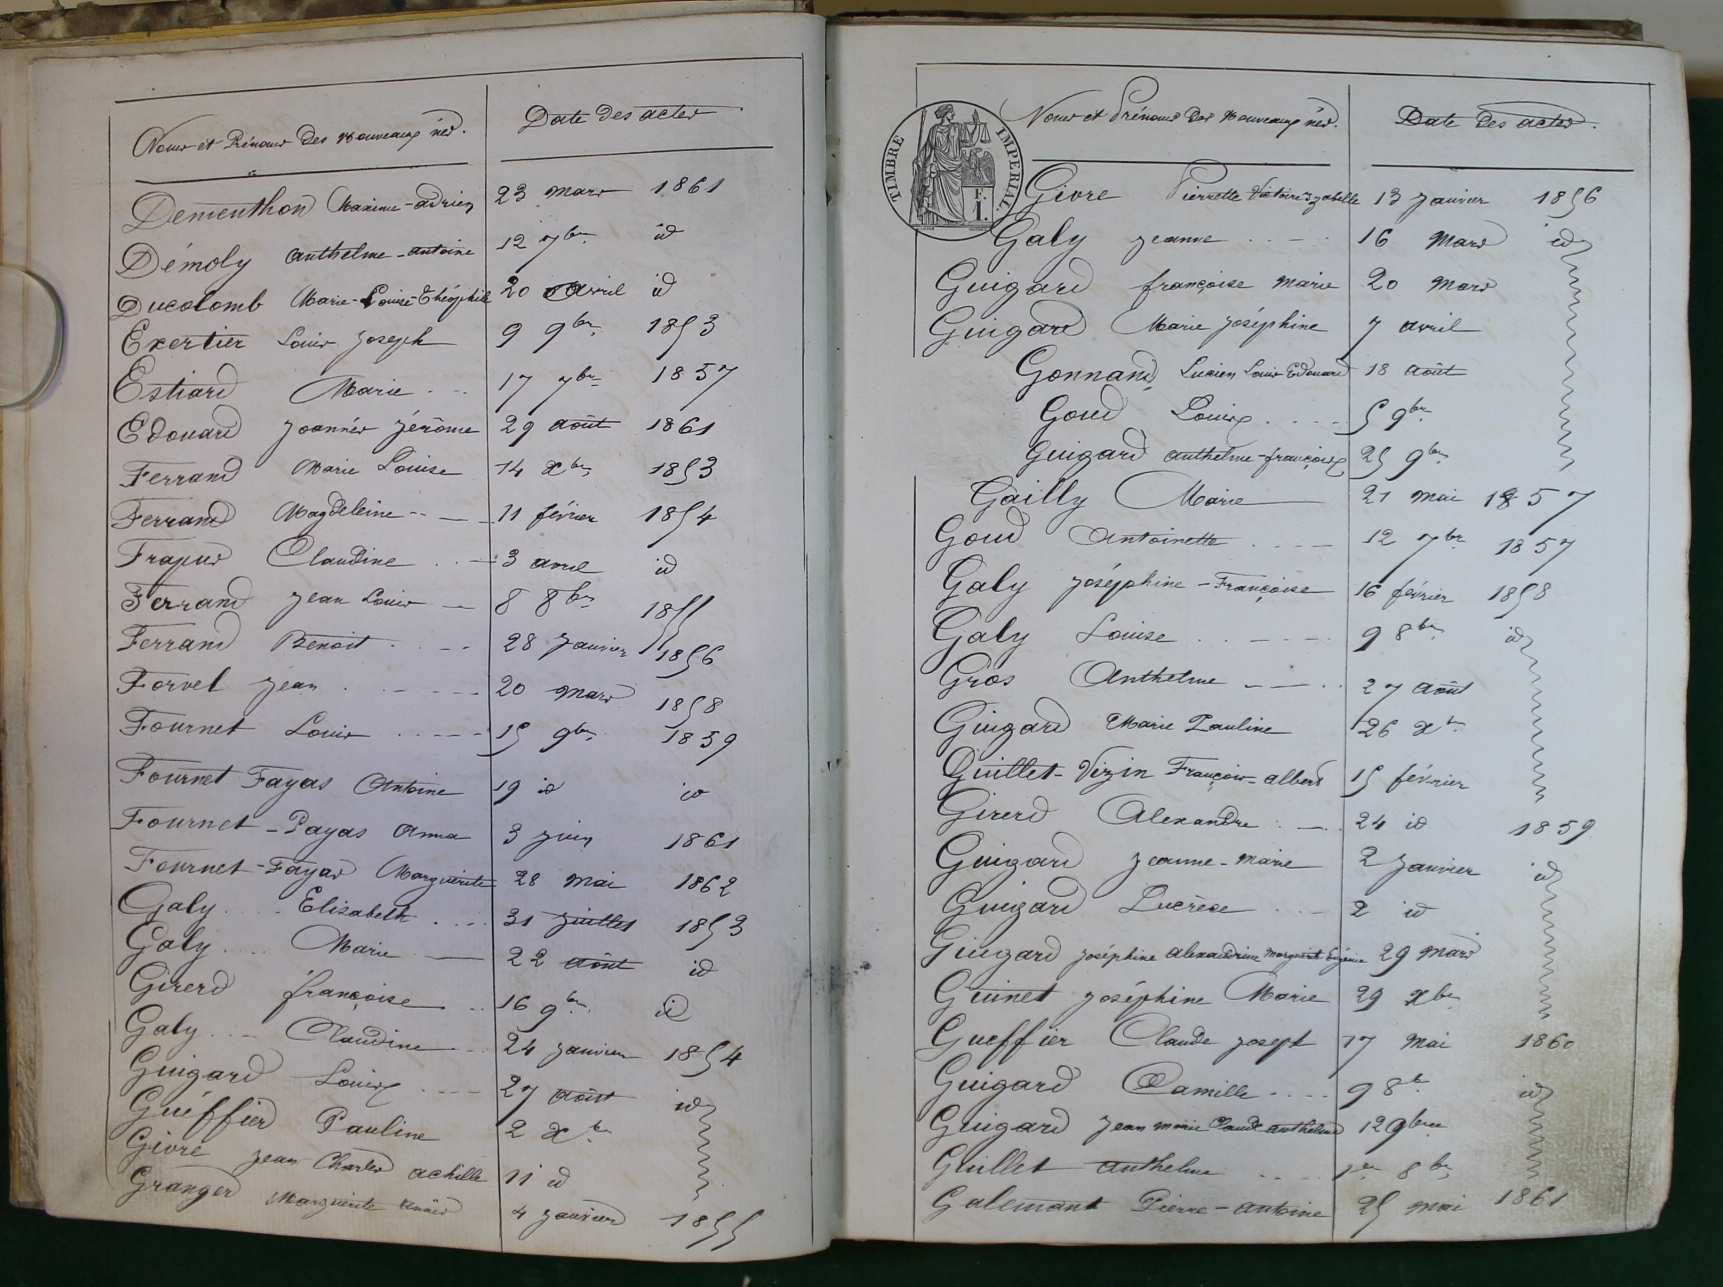 Noms et Prénoms des nouveaux nés. Date des actes
Dementhon Maxime-adrien 23 mars 1861
Démoly anthelme-antoine 12 7bre id
Ducolomb Marie-Louise-Théophile 20 avril id
Exertier Louis Joseph 9 9bre 1853
Estiard Marie 17 7bre 1857
Edouard Joannès jérôme 29 août 1861
Ferrand Marie Louise 14 xbre 1853
Ferrand Magdeleine 11 février 1854
Frapus Claudine 3 avril id
Ferrand jean Louis 8 8bre 1855
Ferrand Benoit 28 Janvier 1856
Forvel jean 20 mars 1858
Fournet Louis 15 9bre 1859
Fournet Fayas Antoine 19 id id
Fournet-Payas anna 3 juin 1861
Fournet-Fayas Marguerite 28 mai 1862
Galy Elisabeth 31 juillet 1853
Galy Marie 22 août id
Girerd françoise 16 9bre id
Galy Claudine 24 janvier 1854
Guigard Louise 27 août id
Guéffier Pauline 2 xbre
Givre jean Charles achille 11 id
Granger Marguerite 4 janvier 1855
TIMBRE IMPERIAL
F.
1.
Noms et Prénoms des nouveaux nés. Date des actes.
Givre Pierrette Victoire Izabelle 13 janvier 1856
Galy jeanne 16 Mars id
Guigard françoise marie 20 mars
Guigard Marie joséphine 7 avril
Gonnand, Lucien Louis Edouard 18 août
Goud Louise 5 9bre
Guigard anthelme-françoise 25 9bre
Gailly Marie 21 mai 1857
Goud Antoinette 12 7bre 1857
Galy joséphine-Françoise 16 février 1858
Galy Louise 9 8bre id
Gros Anthelme 27 août
Guigard Marie Pauline 26 xbre
Guillet-Vézin François-albert 15 février
Girerd Alexandre 24 id 1859
Guigard jeanne-marie 2 janvier id
Guigard Lucrèce 2 id
Guigard joséphine alexandrine marguerite Eugénie 29 mars
Guinet joséphine Marie 29 xbre
Gueffier Claude joseph 17 mai 1860
Guigard Camille 9 8bre id
Guigard jean marie Claude anthelme 12 9bre
Guillet anthelme 1er 8bre
Galemant Pierre-antoine 25 mai 1861